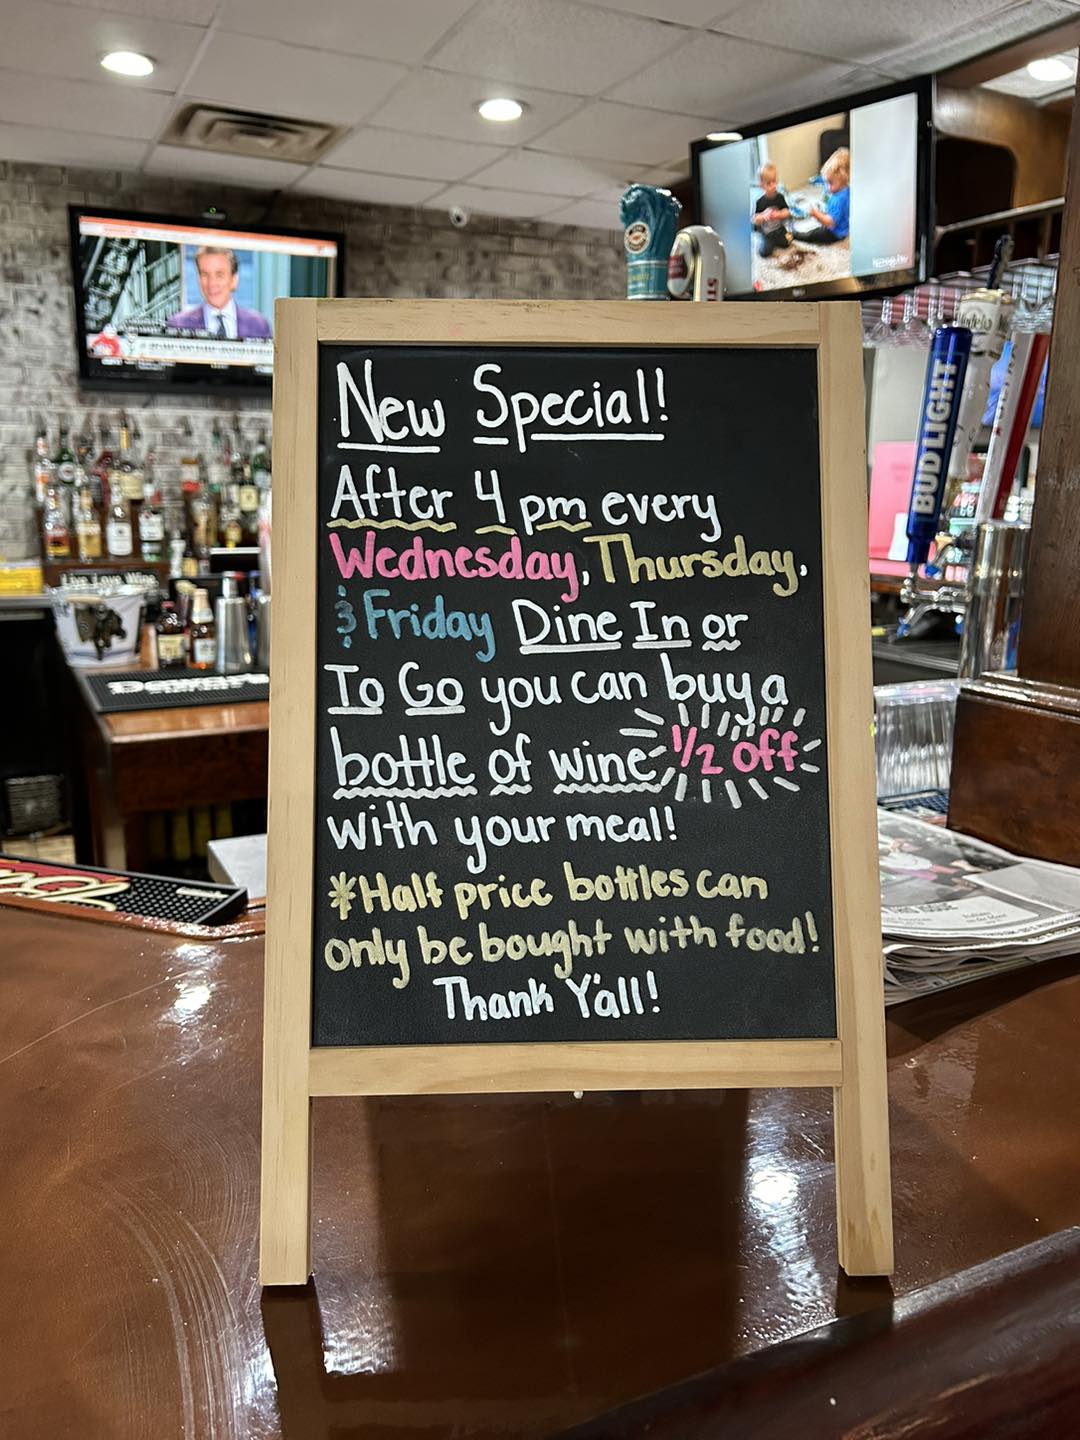 New Special!
After 4 pm every
Wednesday, Thursday,
& Friday Dine In or
To Go you can buy a
bottle of wine 1/2 off
with your meal!
*Half price bottles can
only be bought with food!
Thank Y'all!
BUD LIGHT
Modelo
Live Love Wine